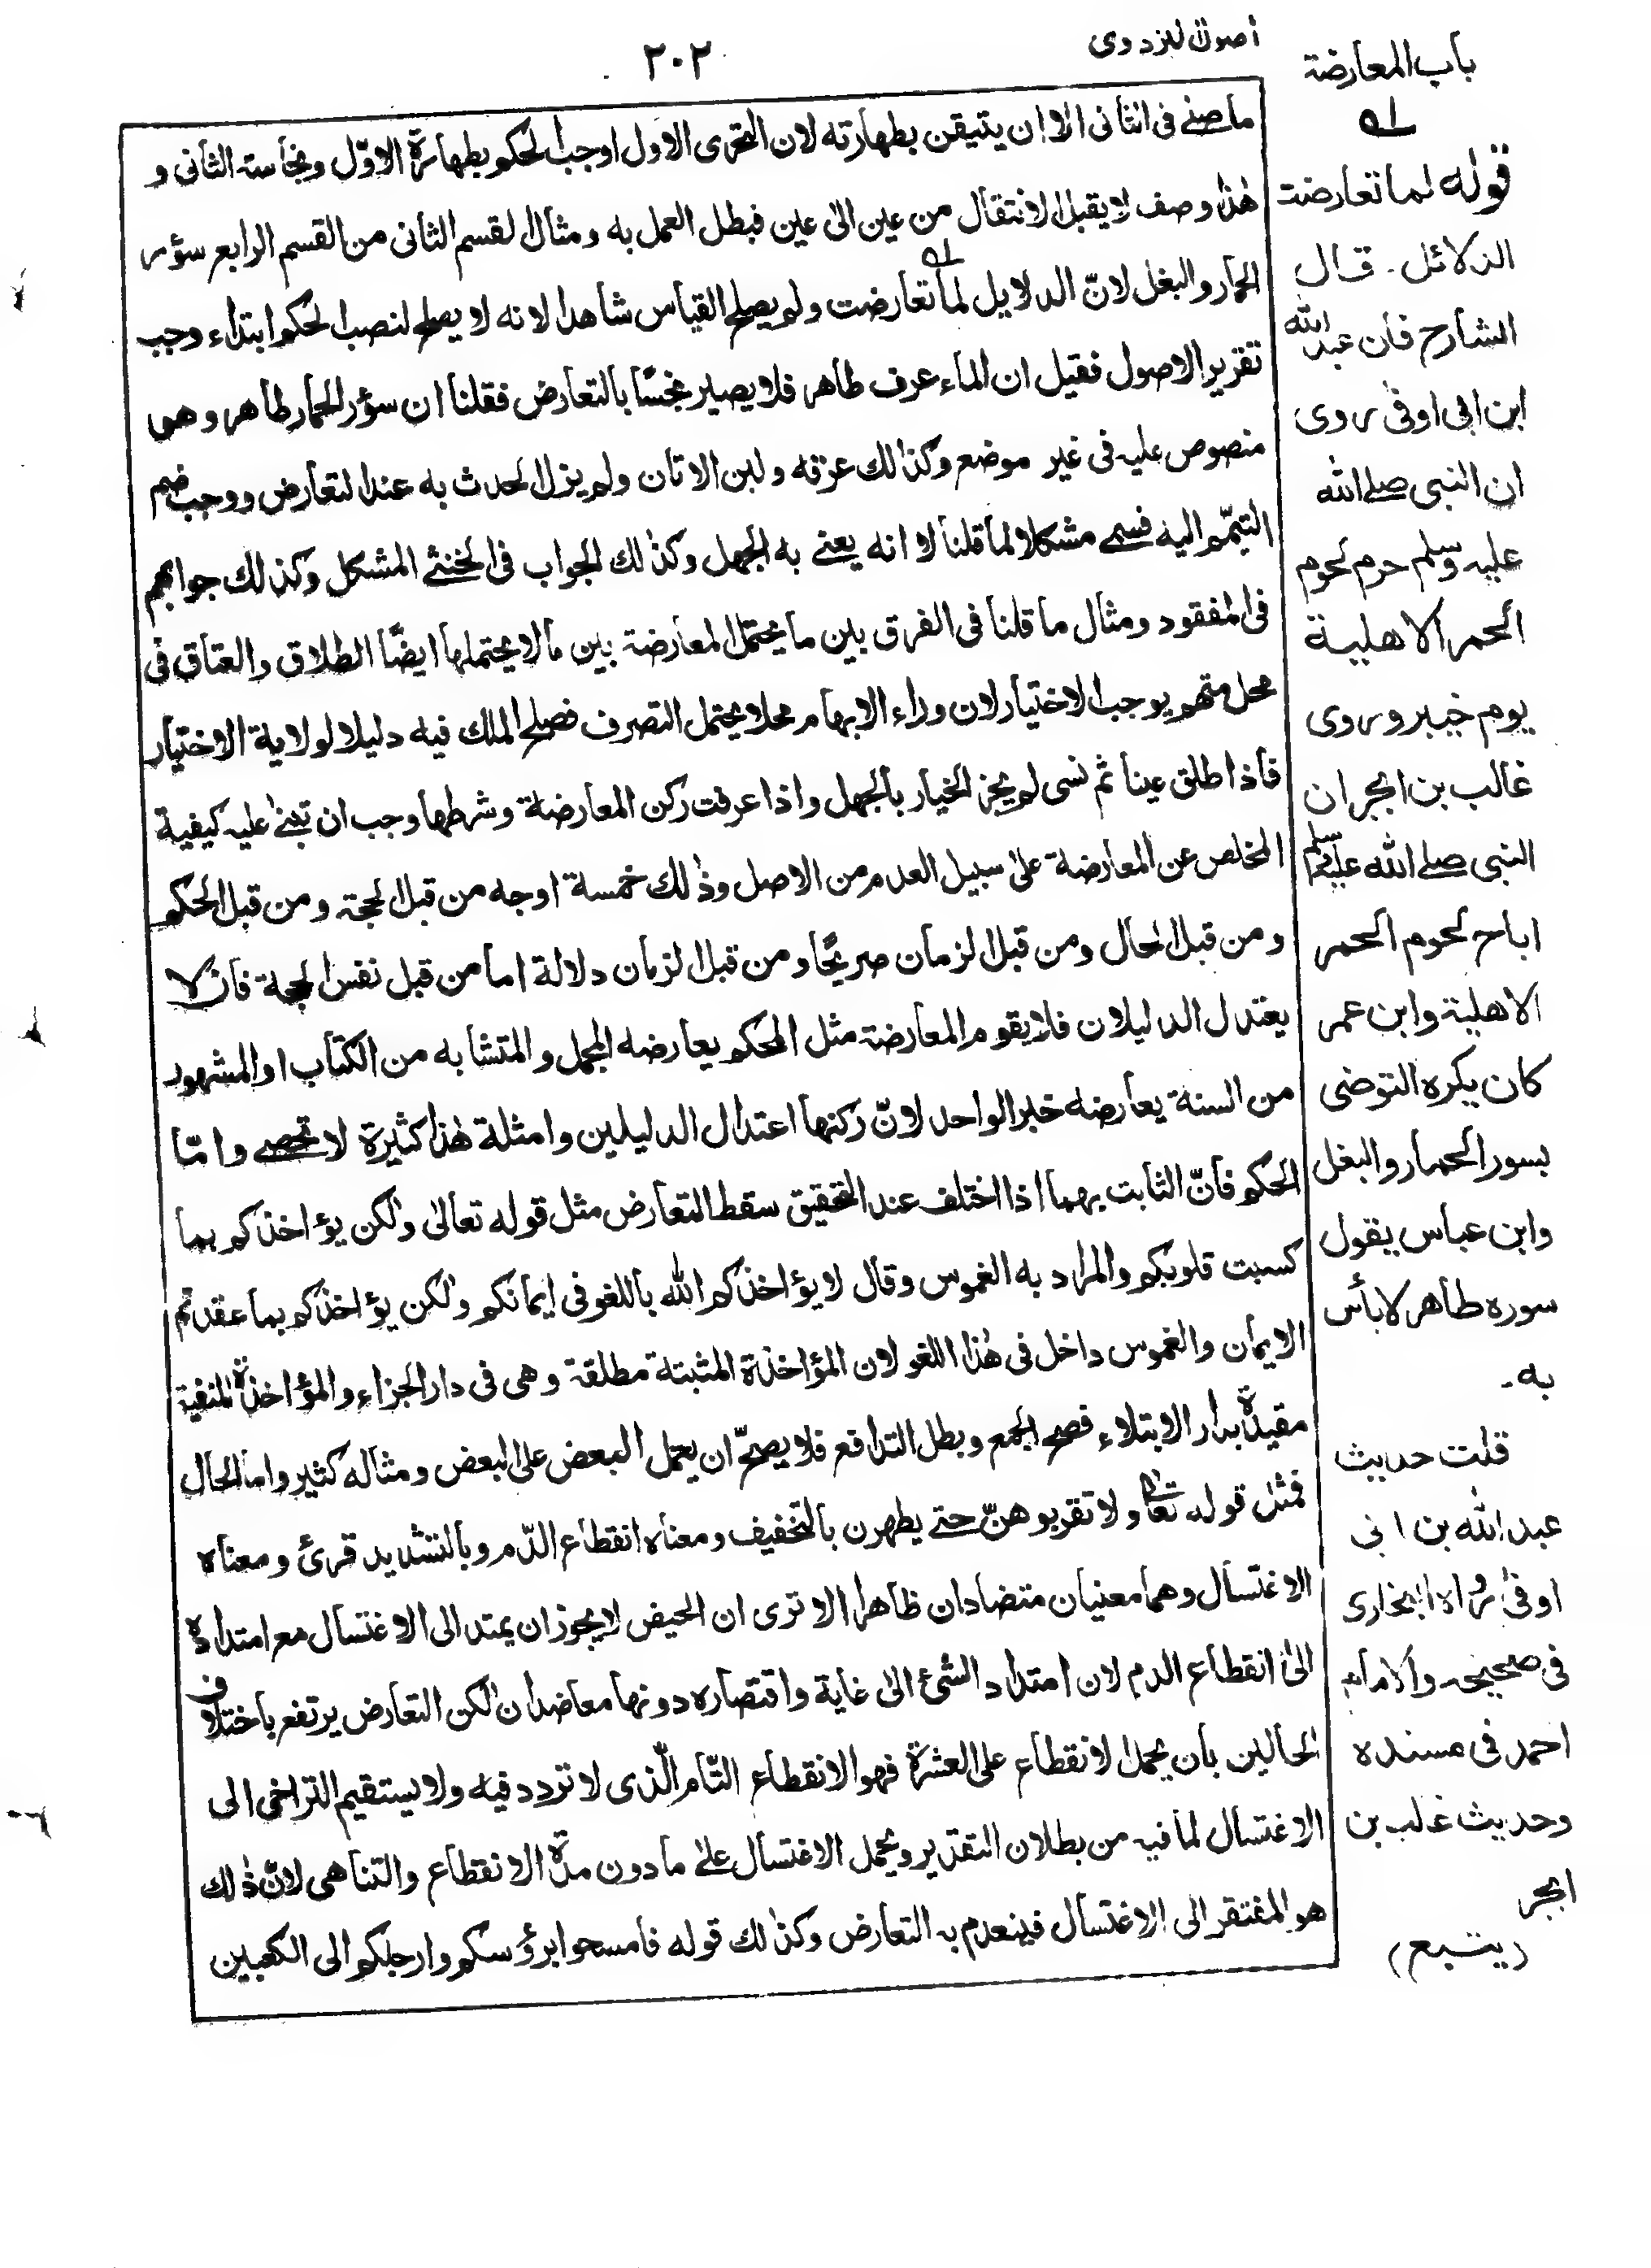 باب المعارضة
أصول البزدوی
٢٠٢
ما صلے فی الثانی الا ان یتیقن بطهارته لان التحری الاول اوجب الحکم بطهارة الاوّل ونجاسة الثانی و
هٰذا وصف لا یقبل الانتقال من عین الیٰ عین فبطل العمل به ومثال القسم الثانی من القسم الرابع سؤر
الحمار والبغل لانّ الدلایل لما تعارضت ولم یصلح القیاس شاهدا لانه لا یصلح لنصب الحکم ابتداء وجب
تقریر الاصول فقیل ان الماء عرف طاهر فلا یصیر نجسًا بالتعارض فقلنا ان سؤر الحمار طاهر وهو
منصوص علیه فی غیر موضع وکذٰلک عرقه ولبن الاتان ولم یزل الحدث به عند التعارض ووجب ضم
التیمّم الیه فسمے مشکلا لما قلنا لا انه یعنے به الجهل وکذٰلک الجواب فی الخنثے المشکل وکذٰلک جوابهم
فی المفقود ومثال ما قلنا فی الفرق بین ما یحتمل المعارضة بین ما لا یحتملها ایضًا الطلاق والعتاق فی
محل متهم یوجب الاختیار لان وراء الابهام محلا یحتمل التصرف فصلح الملک فیه دلیلا لولایة الاختیار
فاذا طلق عینا ثم نسی لم یجز الخیار بالجهل واذا عرفت رکن المعارضة وشرطها وجب ان تبنے علیه کیفیة
المخلص عن المعارضة علیٰ سبیل العدم من الاصل وذٰلک خمسة اوجه من قبل الحجة ومن قبل الحکم
ومن قبل الحال ومن قبل الزمان صریحًا ومن قبل الزمان دلالة اما من قبل نفس الحجة فان لا
یعتدل الدلیلان فلا یقوم المعارضة مثل المحکم یعارضه المجمل والمتشابه من الکتاب او المشهور
من السنة یعارضه خبر الواحد لانّ رکنها اعتدال الدلیلین وامثلة هٰذا کثیرة لا تحصے وامّا
الحکم فانّ الثابت بهما اذا اختلف عند التحقیق سقط التعارض مثل قوله تعالیٰ ولٰکن یؤاخذکم بما
کسبت قلوبکم والمراد به الغموس وقال لا یؤاخذکم الله باللغو فی ایمانکم ولٰکن یؤاخذکم بما عقدتم
الایمان والغموس داخل فی هٰذا اللغو لان المؤاخذة المثبتة مطلقة وهی فی دار الجزاء والمؤاخذة المنفیة
مقیدة بدار الابتلاء فصح الجمع وبطل التدافع فلا یصحّ ان یحمل البعض علی البعض ومثاله کثیر واما الحال
فمثل قوله تعالے ولا تقربوهنّ حتے یطهرن بالتخفیف ومعناه انقطاع الدّم وبالتشدید قرئ ومعناه
الاغتسال وهما معنیان متضادان ظاهرا الا تری ان الحیض لا یجوز ان یمتد الی الاغتسال مع امتداده
الیٰ انقطاع الدم لان امتداد الشئ الیٰ غایة واقتصاره دونها معا ضدان لٰکن التعارض یرتفع باختلاف
الحالین بان یحمل الانقطاع علی العشرة فهو الانقطاع التّام الّذی لا تردد فیه ولا یستقیم التراخی الی
الاغتسال لما فیه من بطلان التقدیر ویحمل الاغتسال علیٰ ما دون مدة الانقطاع والتناهی لانّ ذٰلک
هو المفتقر الی الاغتسال فینعدم به التعارض وکذٰلک قوله فامسحوا برؤسکم وارجلکم الی الکعبین
قوله لما تعارضت
الدلائل۔ قال
الشارح فان عبد الله
ابن ابی اوفیٰ روی
ان النبی صلے الله
علیه وسلم حرم لحوم
الحمر الاهلیة
یوم خیبر وروی
غالب بن ابجر ان
النبی صلے الله علیه وسلم
اباح لحوم الحمر
الاهلیة وابن عمر
کان یکره التوضی
بسور الحمار والبغل
وابن عباس یقول
سوره طاهر لا بأس
به۔
قلت حدیث
عبد الله بن ابی
اوفیٰ رواه البخاری
فی صحیحه والامام
احمد فی مسنده
وحدیث غالب بن
ابجر
(یتبع)